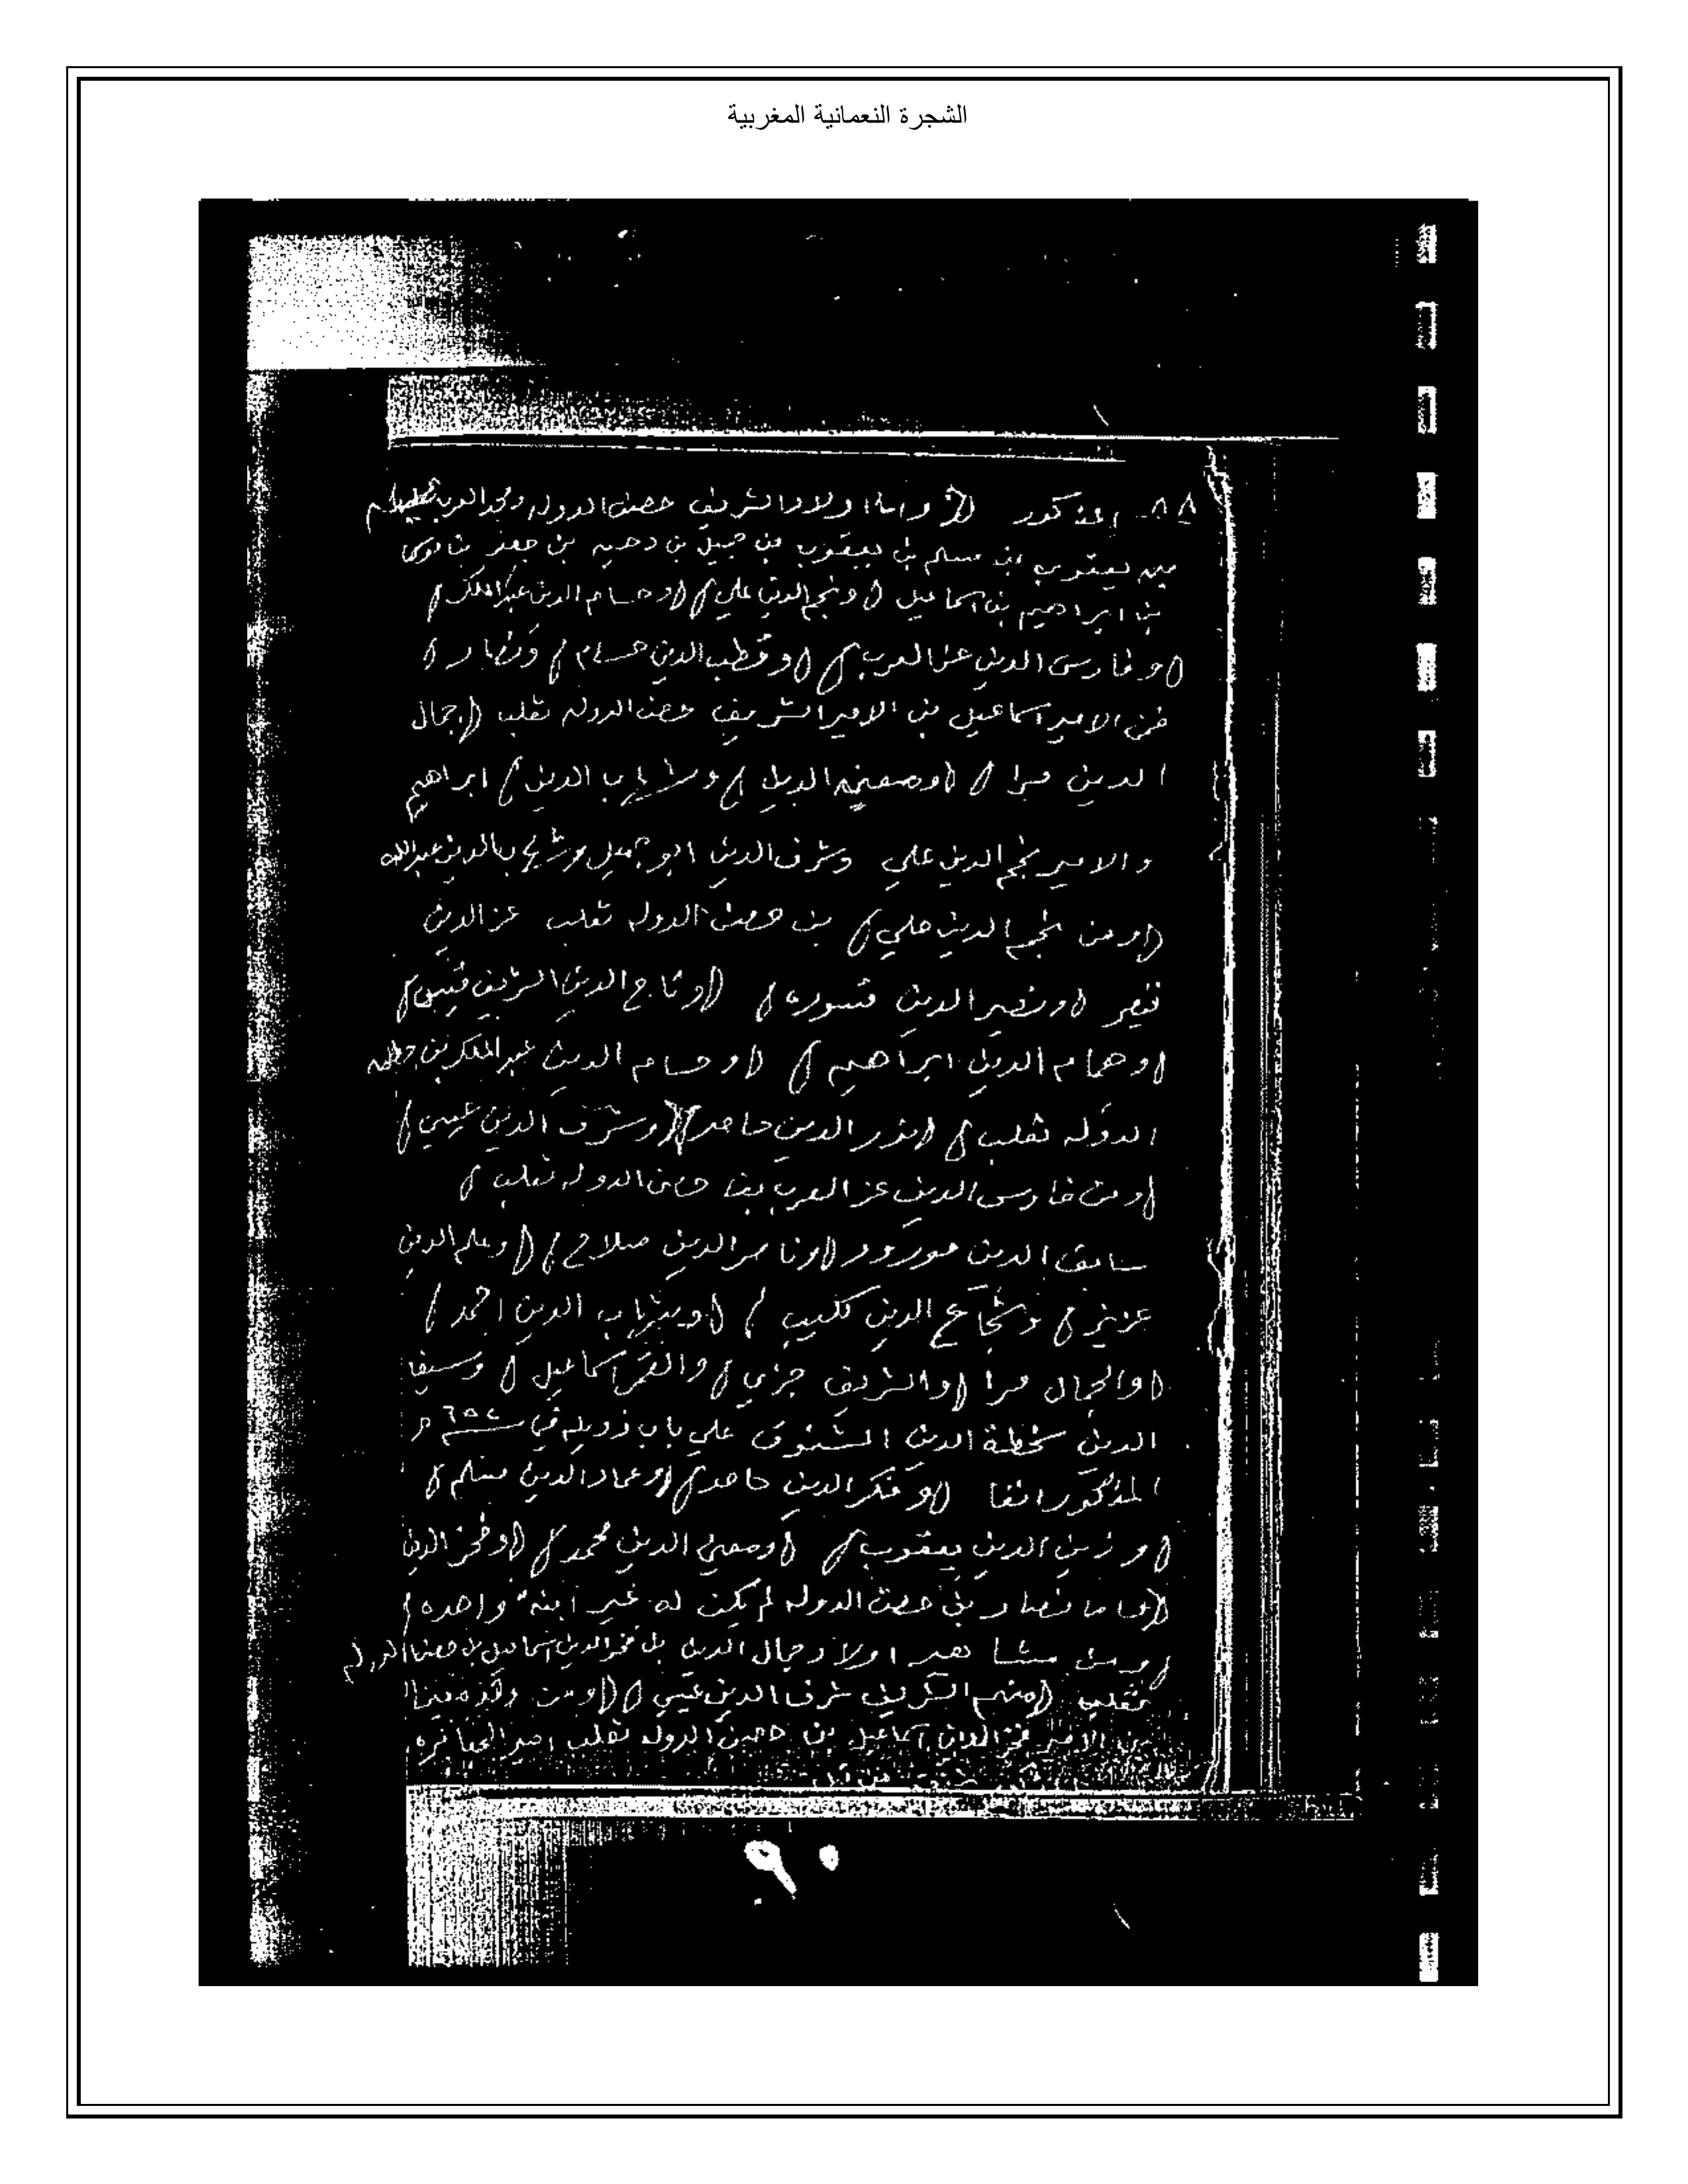 الشجرة النعمانية المغربية
٨٨ المذكور (واما اولاد الشريف حصن الدوله ومجد العرب
بن يعقوب بن مسلم بن يعقوب بن جميل بن دحيه بن جعفر بن موسى
بن ابراهيم بن اسماعيل (ونجم الدين علي) (وحسام الدين عبد الملك)
(وفارس الدين عز العرب) (وقطب الدين حسام) ونصار)
فمن الامير اسماعيل بن الامير الشريف حصن الدوله ثعلب (جمال
الدين مرا) (وصفي الدين) وشهاب الدين) ابراهيم
والامير نجم الدين علي وشرف الدين ابو جميل وشهاب الدين عبدالله
(ومن نجم الدين علي) بن حصن الدوله ثعلب عز الدين
(ونصير الدين قسوره) (وتاج الدين الشريف قيس)
(وهمام الدين ابراهيم) (وحسام الدين عبد الملك بن حصن
الدوله ثعلب) (بدر الدين حامد) (وشرف الدين عيسي)
(ومن فارس الدين عز العرب بن حصن الدوله ثعلب)
سابق الدين مورود (وناصر الدين صلاح) (وعلم الدين
عزيز) وشجاع الدين كليب) (وشهاب الدين احمد)
(والجمال مرا (والشريف جزي) والفخر اسماعيل) وسيفا
الدين الدين المشنوق علي باب زويله في
المذكور انفا (وفكر الدين حامد) (وعماد الدين مسلم)
(وزين الدين يعقوب) (وصفي الدين محمد) (وفخر الدين
(واما نصار بن حصن الدوله لم يكن له غير ابنه واحده)
(ومن مشاهير اولاد جمال الدين بن فخر الدين اسماعيل بن حصن الدوله
ثعلب (منهم الشريف شرف الدين عيسي) (ومن
بن الامير فخر الدين اسماعيل بن حصن الدوله ثعلب امير الجعافره